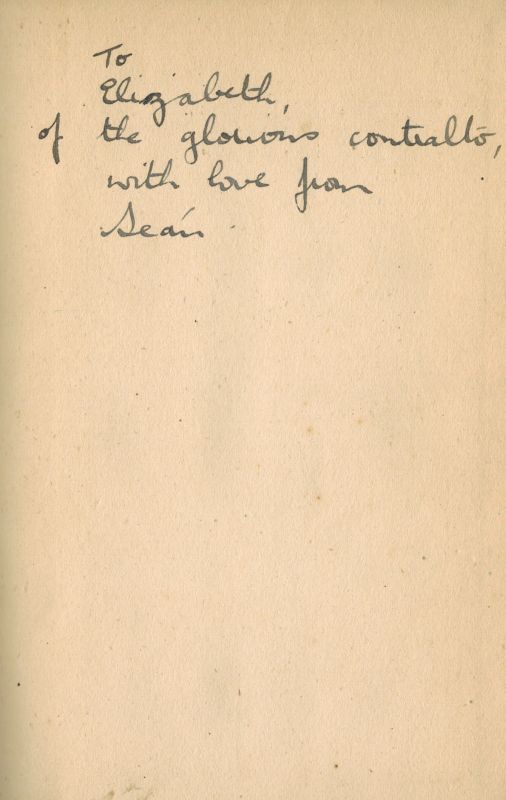 To
Elizabeth,
of the glorious contralto,
with love from
Seán.